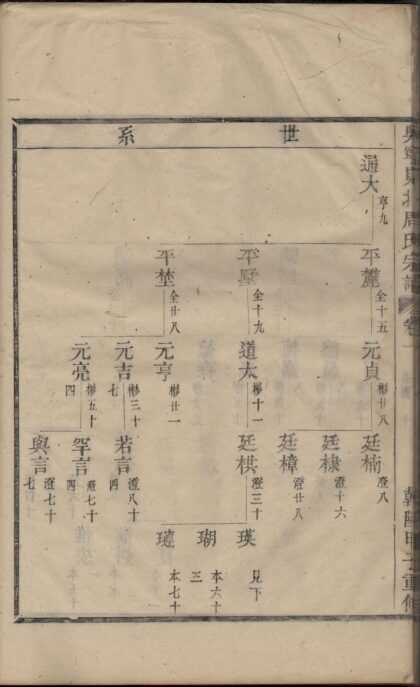 周氏宗譜 卷
重修
世系
通大 亨九
平麓 全十五
平墅 全十九
平埜 全廿八
元貞 彬廿八
道太 彬十一
元亨 彬廿一
元吉 彬三十七
元亮 彬五十四
廷楠 澄八
廷棣 澄十六
廷樟 澄廿八
廷棋 澄三十
若言 澄八十四
罕言 澄七十四
與言 澄七十七
瑛 見下
瑚 本六十三
璉 本七十